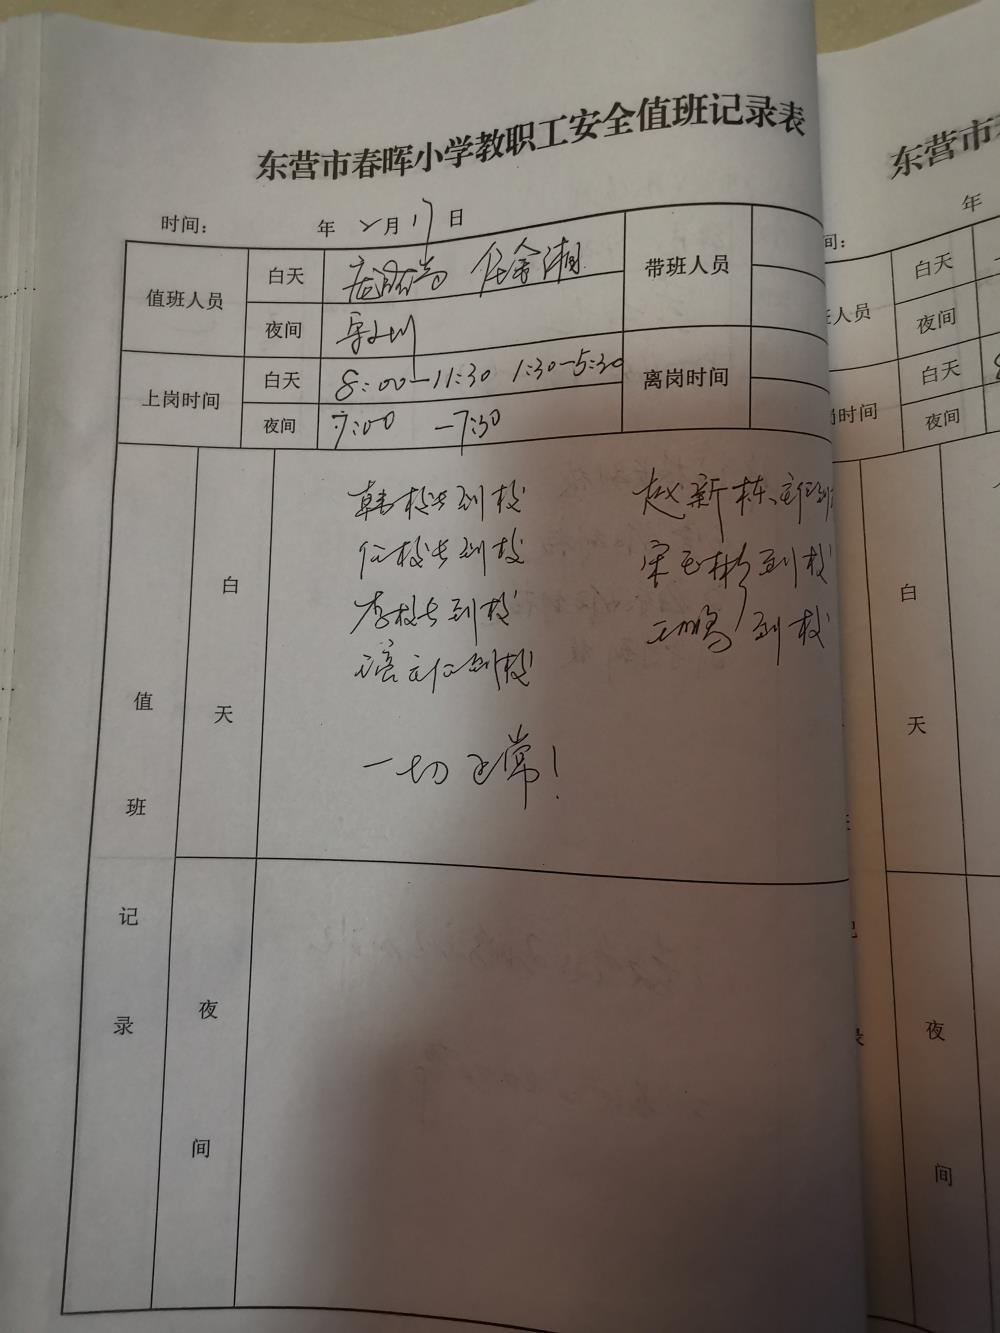 东营市春晖小学教职工安全值班记录表
时间： 年 2月17日
值班人员 白天 任金湘 带班人员
夜间
上岗时间 白天 8:00-11:30 1:30-5:30 离岗时间
夜间 7:00 -7:30
值班记录 白天
韩校长到校 赵新栋主任到
任校长到校 宋玉彬到校
李校长到校 到校
主任到校
一切正常！
夜间
东营市
年
间：
班人员 白天
夜间
岗时间 白天 8
夜间
白天
班
记
录
夜间